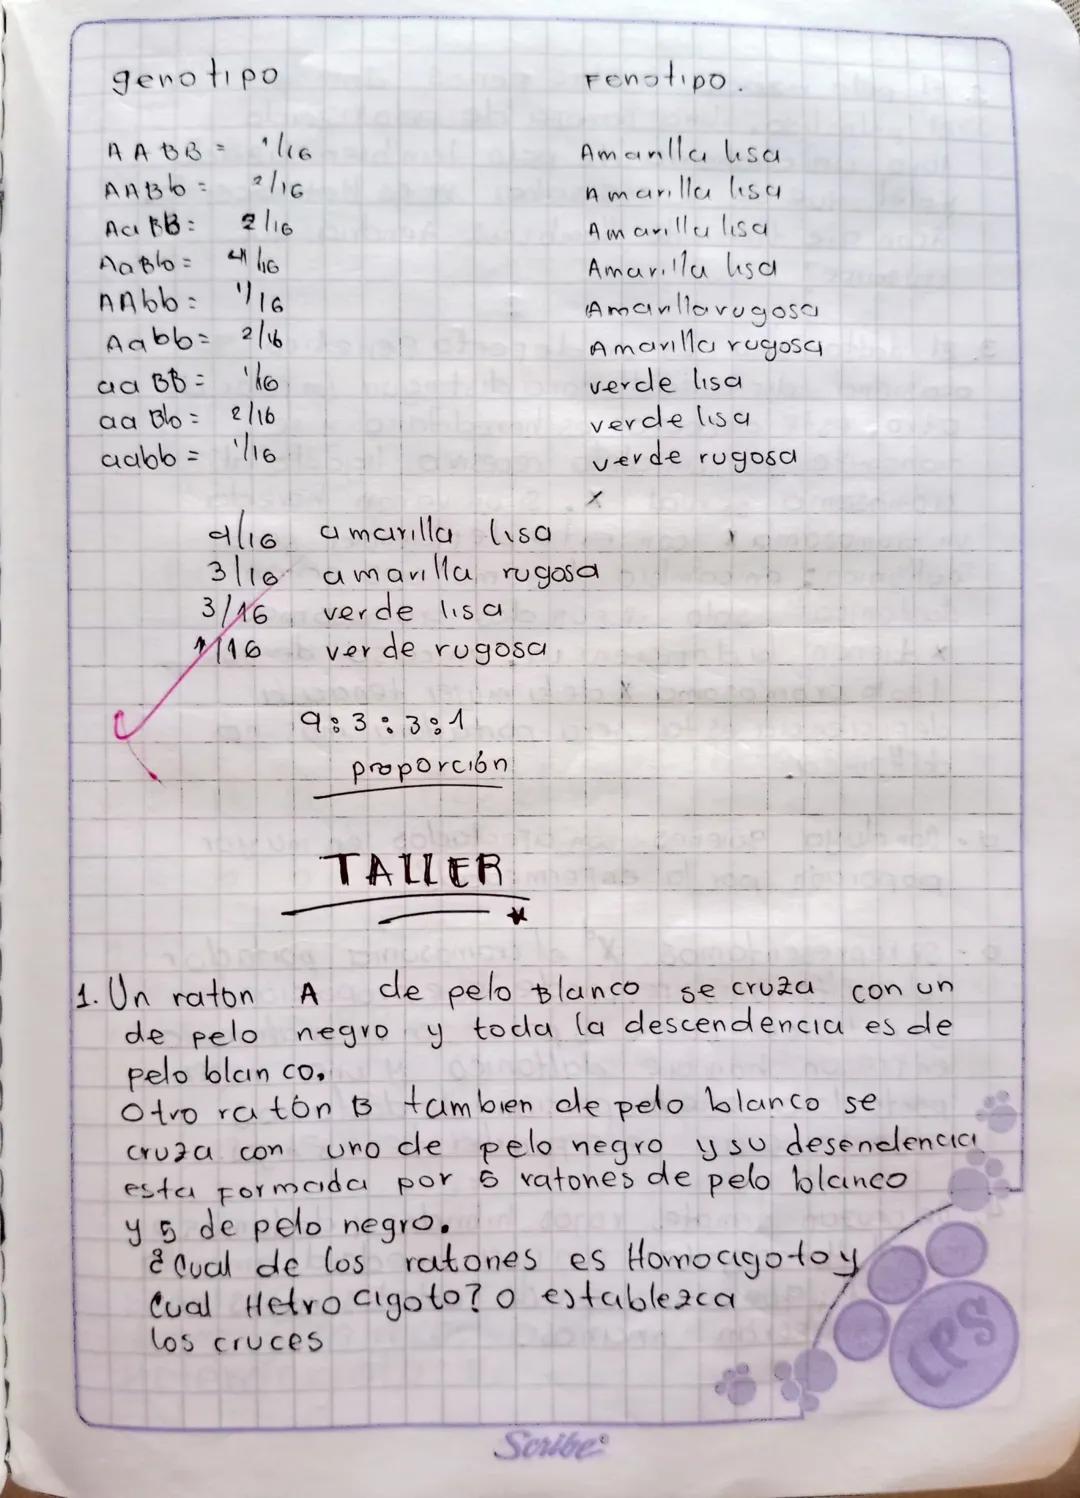 genotipo Fenotipo.
AABB = 1/16 Amarilla lisa
AABb = 2/16 Amarilla lisa
AaBB = 2/16 Amarilla lisa
AaBb = 4/16 Amarilla lisa
AAbb = 1/16 Amarilla rugosa
Aabb = 2/16 Amarilla rugosa
aa BB = 1/16 verde lisa
aa Bb = 2/16 verde lisa
aabb = 1/16 verde rugosa
9/16 amarilla lisa
3/16 amarilla rugosa
3/16 verde lisa
1/16 verde rugosa
9:3:3:1
proporción
TALLER
1. Un raton A de pelo Blanco se cruza con un
de pelo negro y toda la descendencia es de
pelo blanco.
Otro ratón B tambien de pelo blanco se
cruza con uno de pelo negro y su desendencia
esta formada por 5 ratones de pelo blanco
y 5 de pelo negro.
¿Cual de los ratones es Homocigoto y
Cual Hetrocigoto? o establezca
los cruces
LPS
Scribe